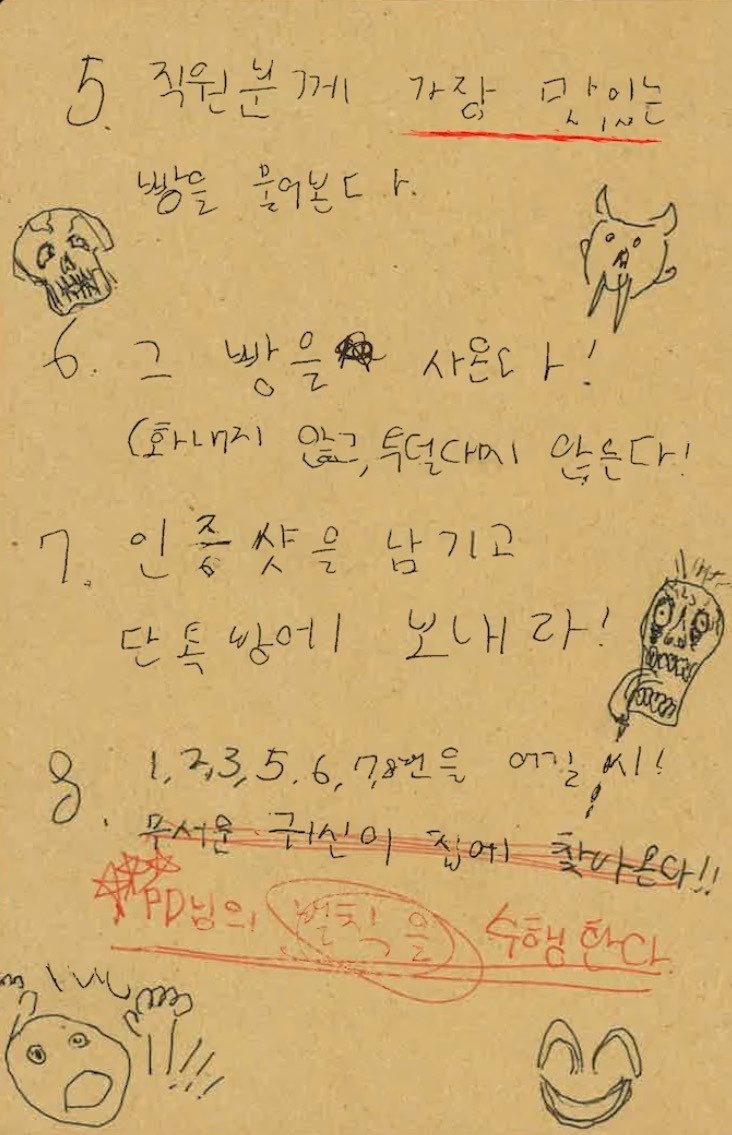 5. 직원분께 가장 맛있는
빵을 물어본다.
6. 그 빵을 사온다!
(화내지 않고, 투덜대지 않는다!
7. 인증샷을 남기고
단톡방에 보내라!
8. 1,2,3,5.6,7,8번을 어길 씨!
무서운 귀신이 집에 찾아온다!!
PD님의 벌칙을 수행한다.